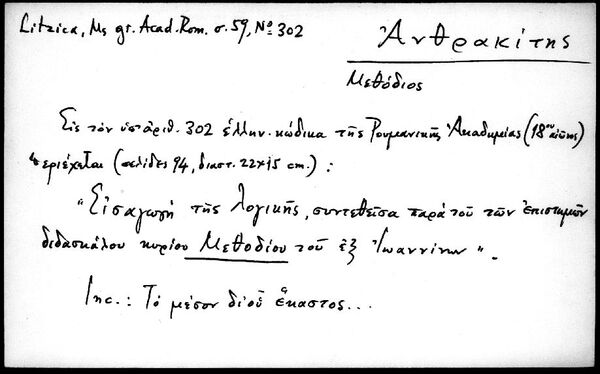 Litzica, Ms gr. Acad. Rom. σ. 59, Nο 302
Ἀνθρακίτης
Μεθόδιος
Εἰς τὸν ὑπ' ἀριθ. 302 ἑλλην. κώδικα τῆς Ρουμανικῆς Ἀκαδημίας (18ου αἰῶνος)
περιέχεται (σελίδες 94, διαστ. 22×15 cm.) :
"Εἰσαγωγὴ τῆς λογικῆς, συντεθεῖσα παρὰ τοῦ τῶν ἐπιστημῶν
διδασκάλου κυρίου Μεθοδίου τοῦ ἐξ Ἰωαννίνων".
Inc.: Τὸ μέσον δι' οὗ ἕκαστος...